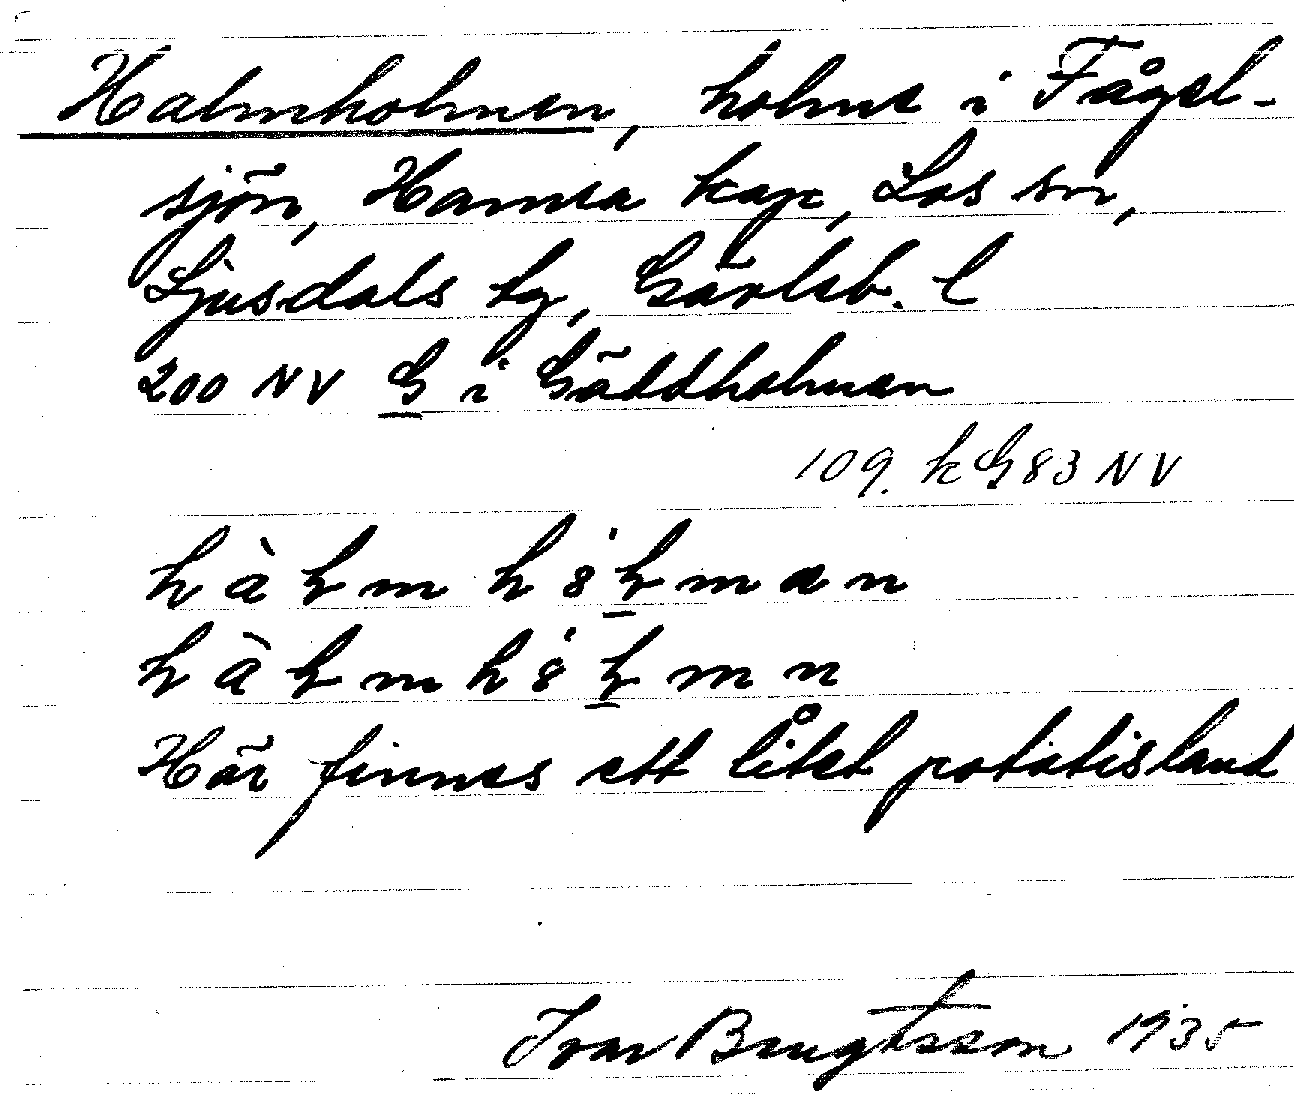 Halmholmen, holme i Fågel-
sjön, Hamra kap, Los sn,
Ljusdals tg, Gävleb. l
200 NV G i Gäddholmen
109. k G 83 NV
Här finnes ett litet potatisland
Ivar Bengtsson 1935